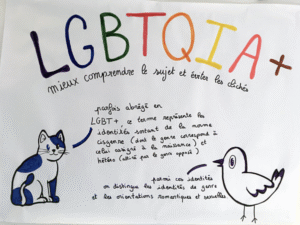 LGBTQIA+
mieux comprendre le sujet et éviter les clichés
parfois abrégé en
LGBT+, ce terme représente les
identités sortant de la norme
cisgenre (dont le genre correspond à
celui assigné à la naissance) et
hétéro (attiré par le genre opposé)
parmi ces identités
on distingue les identités de genre
et les orientations romantiques et sexuelles